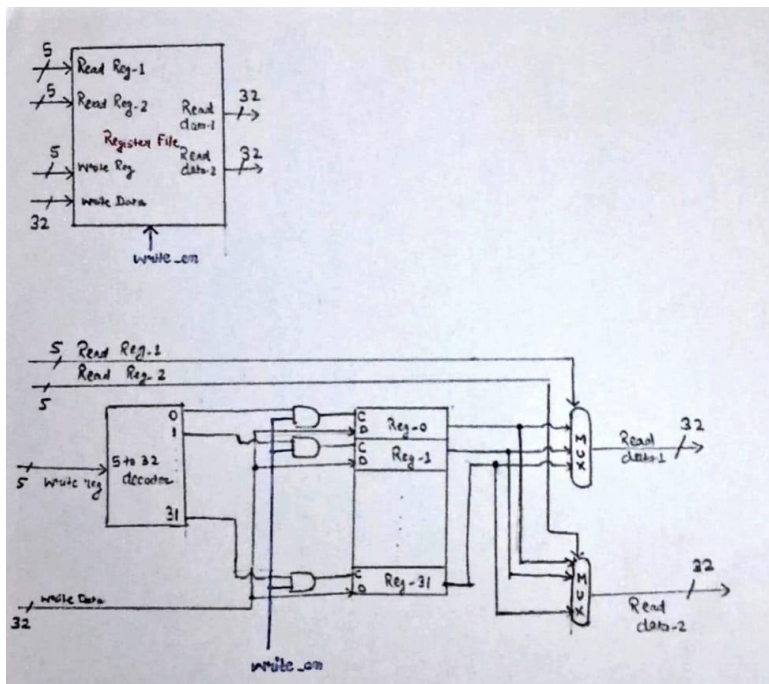 5
Read Reg-1
5
Read Reg-2
Read
data-1
32
Register File
5
Write Reg
Read
data-2
32
Write Data
32
write_en
5 Read Reg-1
Read Reg-2
5
0
1
5 to 32
decoder
31
5
write reg
C
D
Reg-0
C
D
Reg-1
C
D
Reg-31
MUX
Read
data-1
32
MUX
Read
data-2
32
Write Data
32
write_en